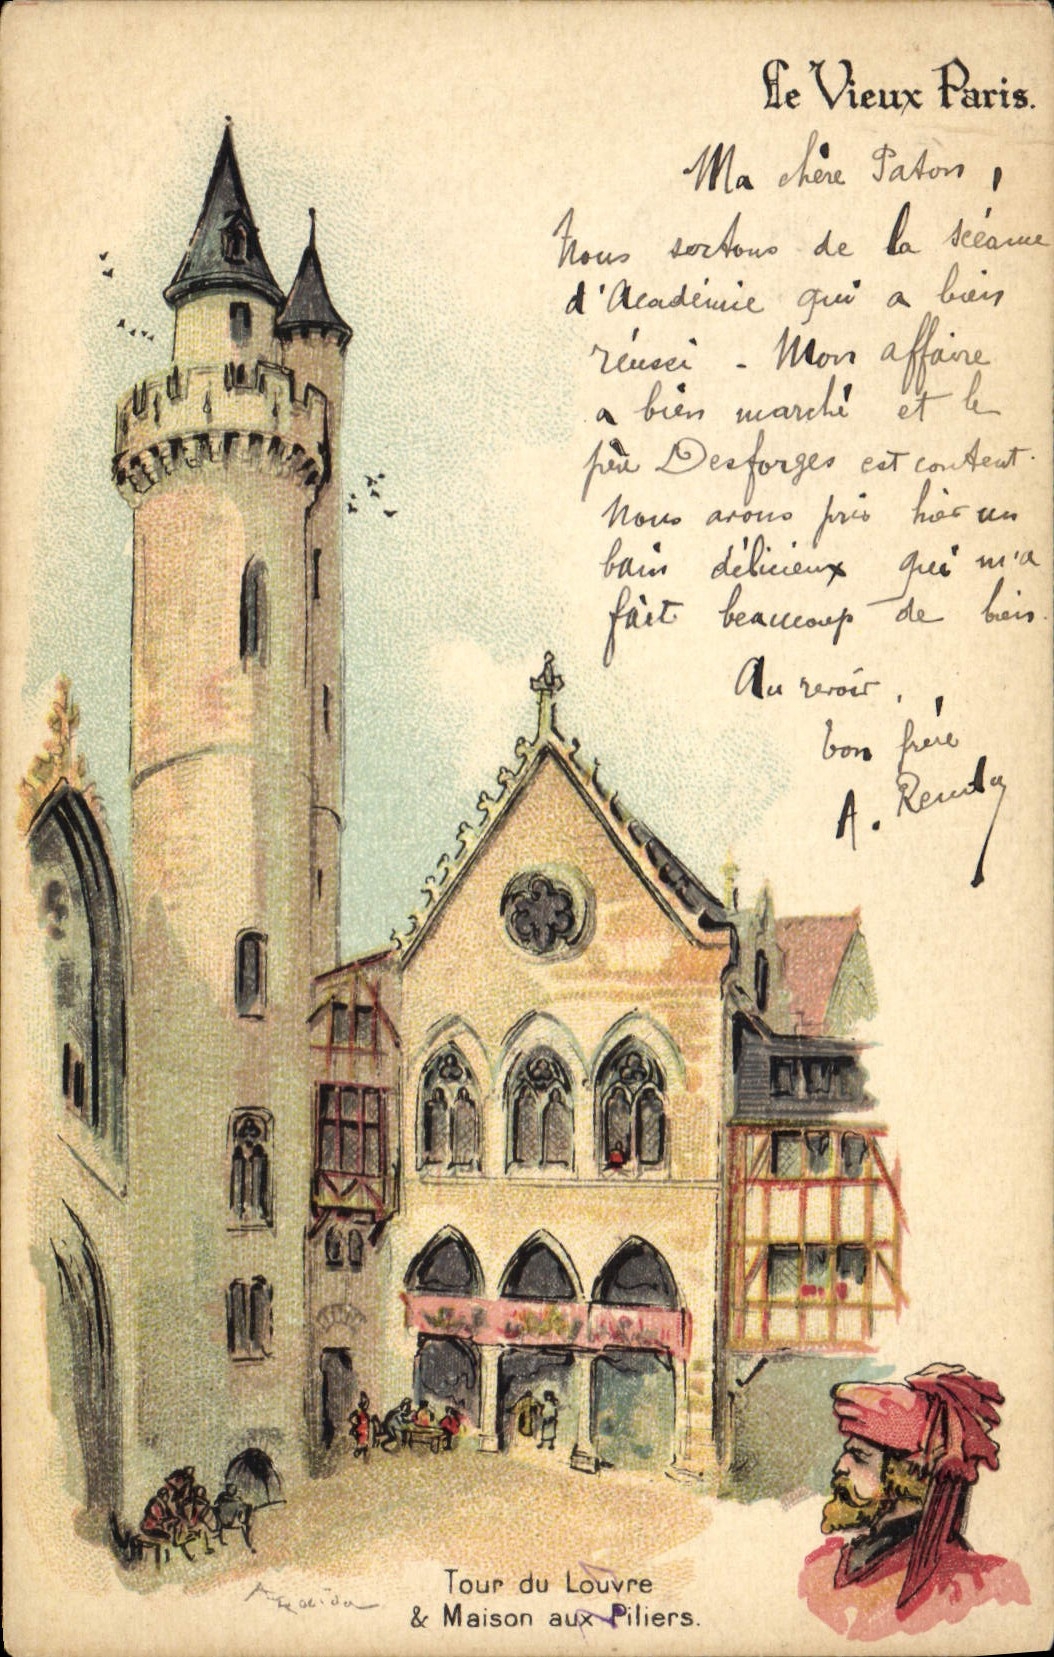 Le Vieux Paris.
Ma chère Paton,
Nous sortons de la scéance
d'Académie qui a bien
réussi - Mon affaire
a bien marché et le
père Desforges est content.
Nous avons pris hier un
bain délicieux qui m'a
fait beaucoup de bien.
Au revoir,
bon frère
A.
Tour du Louvre
& Maison aux Piliers.